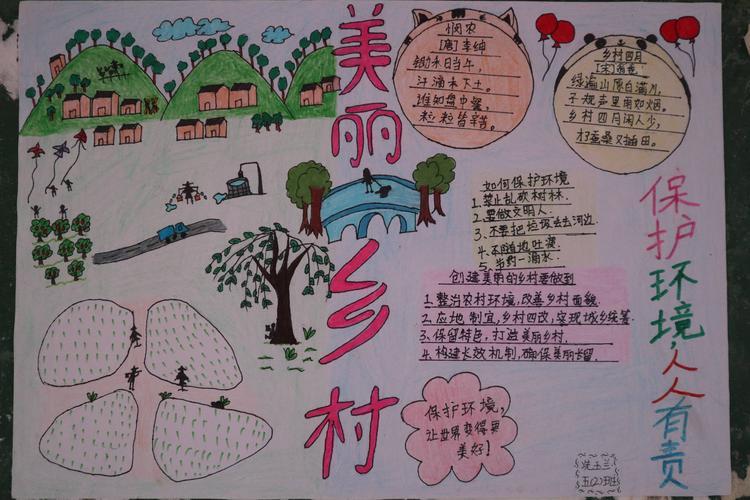 美丽乡村
悯农
[唐]李绅
锄禾日当午,
汗滴禾下土。
谁知盘中餐,
粒粒皆辛苦。
乡村四月
[宋]翁卷
绿遍山原白满川,
子规声里雨如烟。
乡村四月闲人少,
村蚕桑又插田。
如何保护环境
1. 禁止乱砍树林.
2. 要做文明人.
3. 不要把垃圾丢去河边
4. 不随地吐痰
5. 节约一滴水.
创建美丽的乡村要做到
1. 整治农村环境,改善乡村面貌.
2. 应地制宜,乡村四改,实现城乡统筹.
3. 保留特色,打造美丽乡村.
4. 构建长效机制,确保美丽长留.
保护环境,
让世界变得更
美好!
保护环境,人人有责
洪玉兰
五(2)班